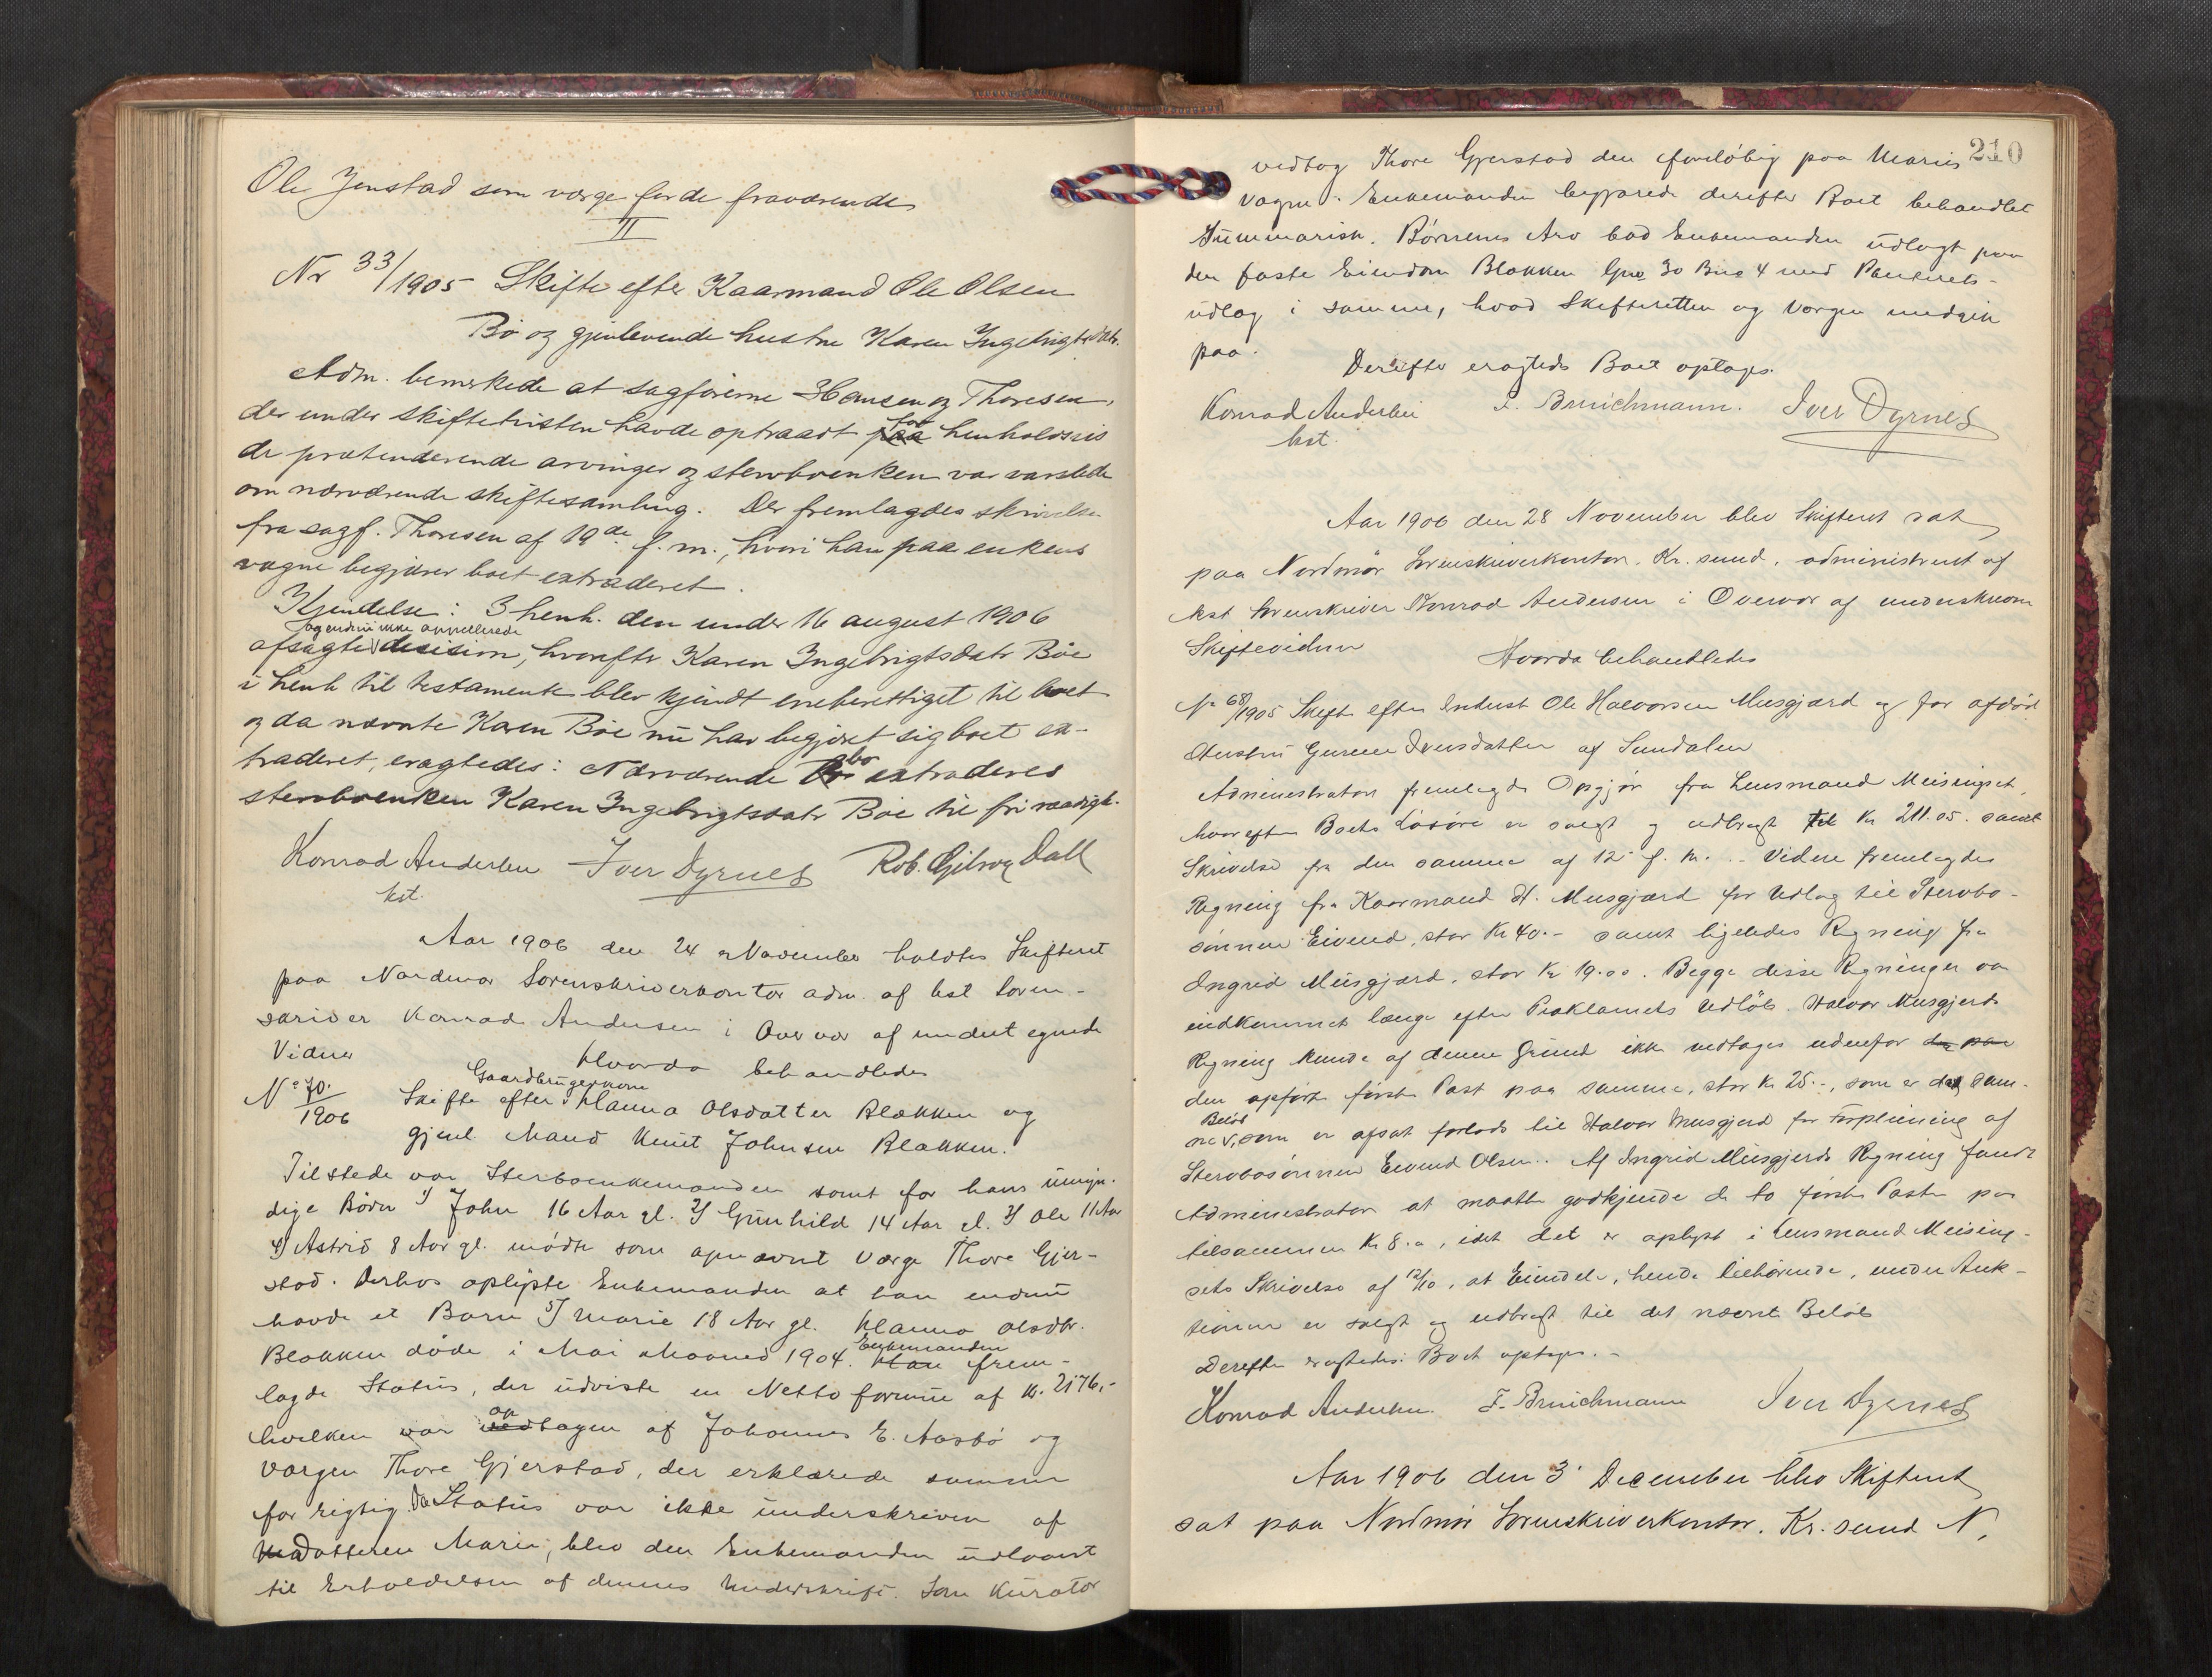 Ole Jenstad som værge for de fraværende
II
Nr 33/1905 Skifte efter Kaarmand Ole Olsen
Bø og gjenlevende hustru Karen Ingebrigtsdatr.
Adm. bemerkede at sagførerne Hansen og Thoresen,
der under skiftetvisten havde optraadt for henholdsvis
de prætenderende arvinger og stervboenken var varslede
om nærværende skiftesamling. Der fremlagdes skrivelse
fra sagf. Thoresen af 19de f. m., hvori han paa enkens
vegne begjærer boet extraderet.
Kjendelse: I henh. den under 16 august 1906
og endnu ikke appellerede
afsagte decision, hvorefter Karen Ingebrigtsdatr Bøe
i henh til testamente blev kjendt eneberettiget til boet
og da nævnte Karen Bøe nu har begjæret sig boet ex-
traderet, eragtedes: Nærværende bo extraderes
stervboenken Karen Ingebrigtsdatr Bøe til fri raadigh.
Konrad Andersen Iver Dyrnes Rob. Gilroy Dall
kst.
Aar 1906 den 24 November holdtes Skifteret
paa Nordmør Sorenskriverkontor adm. af kst Soren-
skriver Konrad Andersen i Overvær af undertegnede
Vidner
Hvorda behandledes
Gaardbrugerkone
No 70/1906 Skifte efter Hanna Olsdatter Blækken og
gjenl. Mand Knut Johnsen Blækken.
Tilstede var Sterboenkemanden samt for hans umyn-
dige Børn 1) John 16 Aar gl. 2) Gunhild 14 Aar gl. 3) Ole 11 Aar
4) Astrid 8 Aar gl. mødte som opnævnt Værge Thore Gjer-
stad. Derhos oplyste Enkemanden at han endnu
havde et Barn 5) Marie 18 Aar gl. Hanna Olsdtr.
Blækken døde i Mai Maaned 1904. Enkemanden frem-
lagde Status, der udviste en Netto formue af kr. 2176,-
hvilken var optagen af Johannes E. Aasbø og
Værgen Thore Gjerstad, der erklærede samme
for rigtig. Da Status var ikke underskreven af
Datteren Marie, blev den Enkemanden udlaant
til Erholdelsen af dennes Underskrift. Som Kurator
210
vedtog Thore Gjerstad den foreløbig paa Maries
Vegne. Enkemanden begjærede derefter Boet behandlet
Summarisk. Børnenes Arv bad Enkemanden udlagt paa
den faste Eiendom Blækken Gno 30 Bno 4 med Panterets-
udlæg i samme, hvad Skifteretten og Værgen medgik
paa.
Derefter eragtedes Boet optages.
Konrad Andersen F. Bruichmann. Iver Dyrnes
kst.
Aar 1906 den 28 November blev Skifteret sat
paa Nordmør Sorenskriverkontor, Kr.sund, administreret af
kst Sorenskriver Konrad Andersen i Overvær af underskrevne
Skiftevidner
Hvorda behandledes
No 68/1905 Skifte efter Inderst Ole Halvorsen Musgjærd og før afdød
Hustru Gurine Iversdatter af Sundalen
Administrator fremlagde Opgjør fra Lensmand Meisingset,
hvorefter Boets Løsøre er solgt og udbragt til Kr 211.05. samt
Skrivelse fra den samme af 12 f. m. - Videre fremlagdes
Regning fra Kaarmand H. Musgjærd for Udlæg til Stervbo-
sønnen Eivend, stor Kr 40.- samt ligeledes Regning fra
Ingrid Musgjærd, stor Kr 19.00. Begge disse Regninger var
indkommet længe efter Proklamets Udløb. Halvor Musgjerds
Regning kunde af denne Grund ikke vedtages udenfor
den opførte første Post paa samme, stor Kr 25.-, som er det sam-
Beløb
me, som er afsat forlods til Halvor Musgjerd for Forpleining af
Stervbosønnen Eivend Olsen. Af Ingrid Musgjerds Regning fandt
Administrator at maatte godkjende de to første Poster paa
tilsammen Kr 8.-, idet det er oplyst i Lensmand Meising-
sets Skrivelse af 12/10, at Eiendele, hende tilhørende, under Auk-
tionen er solgt og udbragt til det nævnte Beløb
Derefter eragtedes: Boet optages. -
Konrad Andersen. F. Bruichmann Iver Dyrnes
Aar 1906 den 3 December blev Skifteret
sat paa Nordmør Sorenskriverkontor, Kr.sund N,